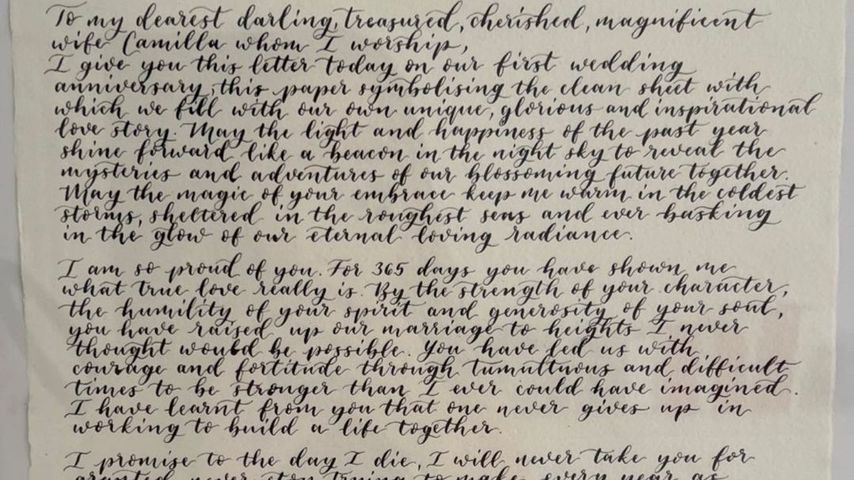 To my dearest darling, treasured, cherished, magnificent
wife Camilla whom I worship,
I give you this letter today on our first wedding
anniversary, this paper symbolising the clean sheet with
which we fill with our own unique, glorious and inspirational
love story. May the light and happiness of the past year
shine forward like a beacon in the night sky to reveal the
mysteries and adventures of our blossoming future together.
May the magic of your embrace keep me warm in the coldest
storms, sheltered in the roughest seas and ever basking
in the glow of our eternal loving radiance.
I am so proud of you. For 365 days you have shown me
what true love really is. By the strength of your character,
the humility of your spirit and generosity of your soul,
you have raised up our marriage to heights I never
thought would be possible. You have led us with
courage and fortitude through tumultuous and difficult
times to be stronger than I ever could have imagined.
I have learnt from you that one never gives up in
working to build a life together.
I promise to the day I die, I will never take you for
granted, never stop trying to make every year as